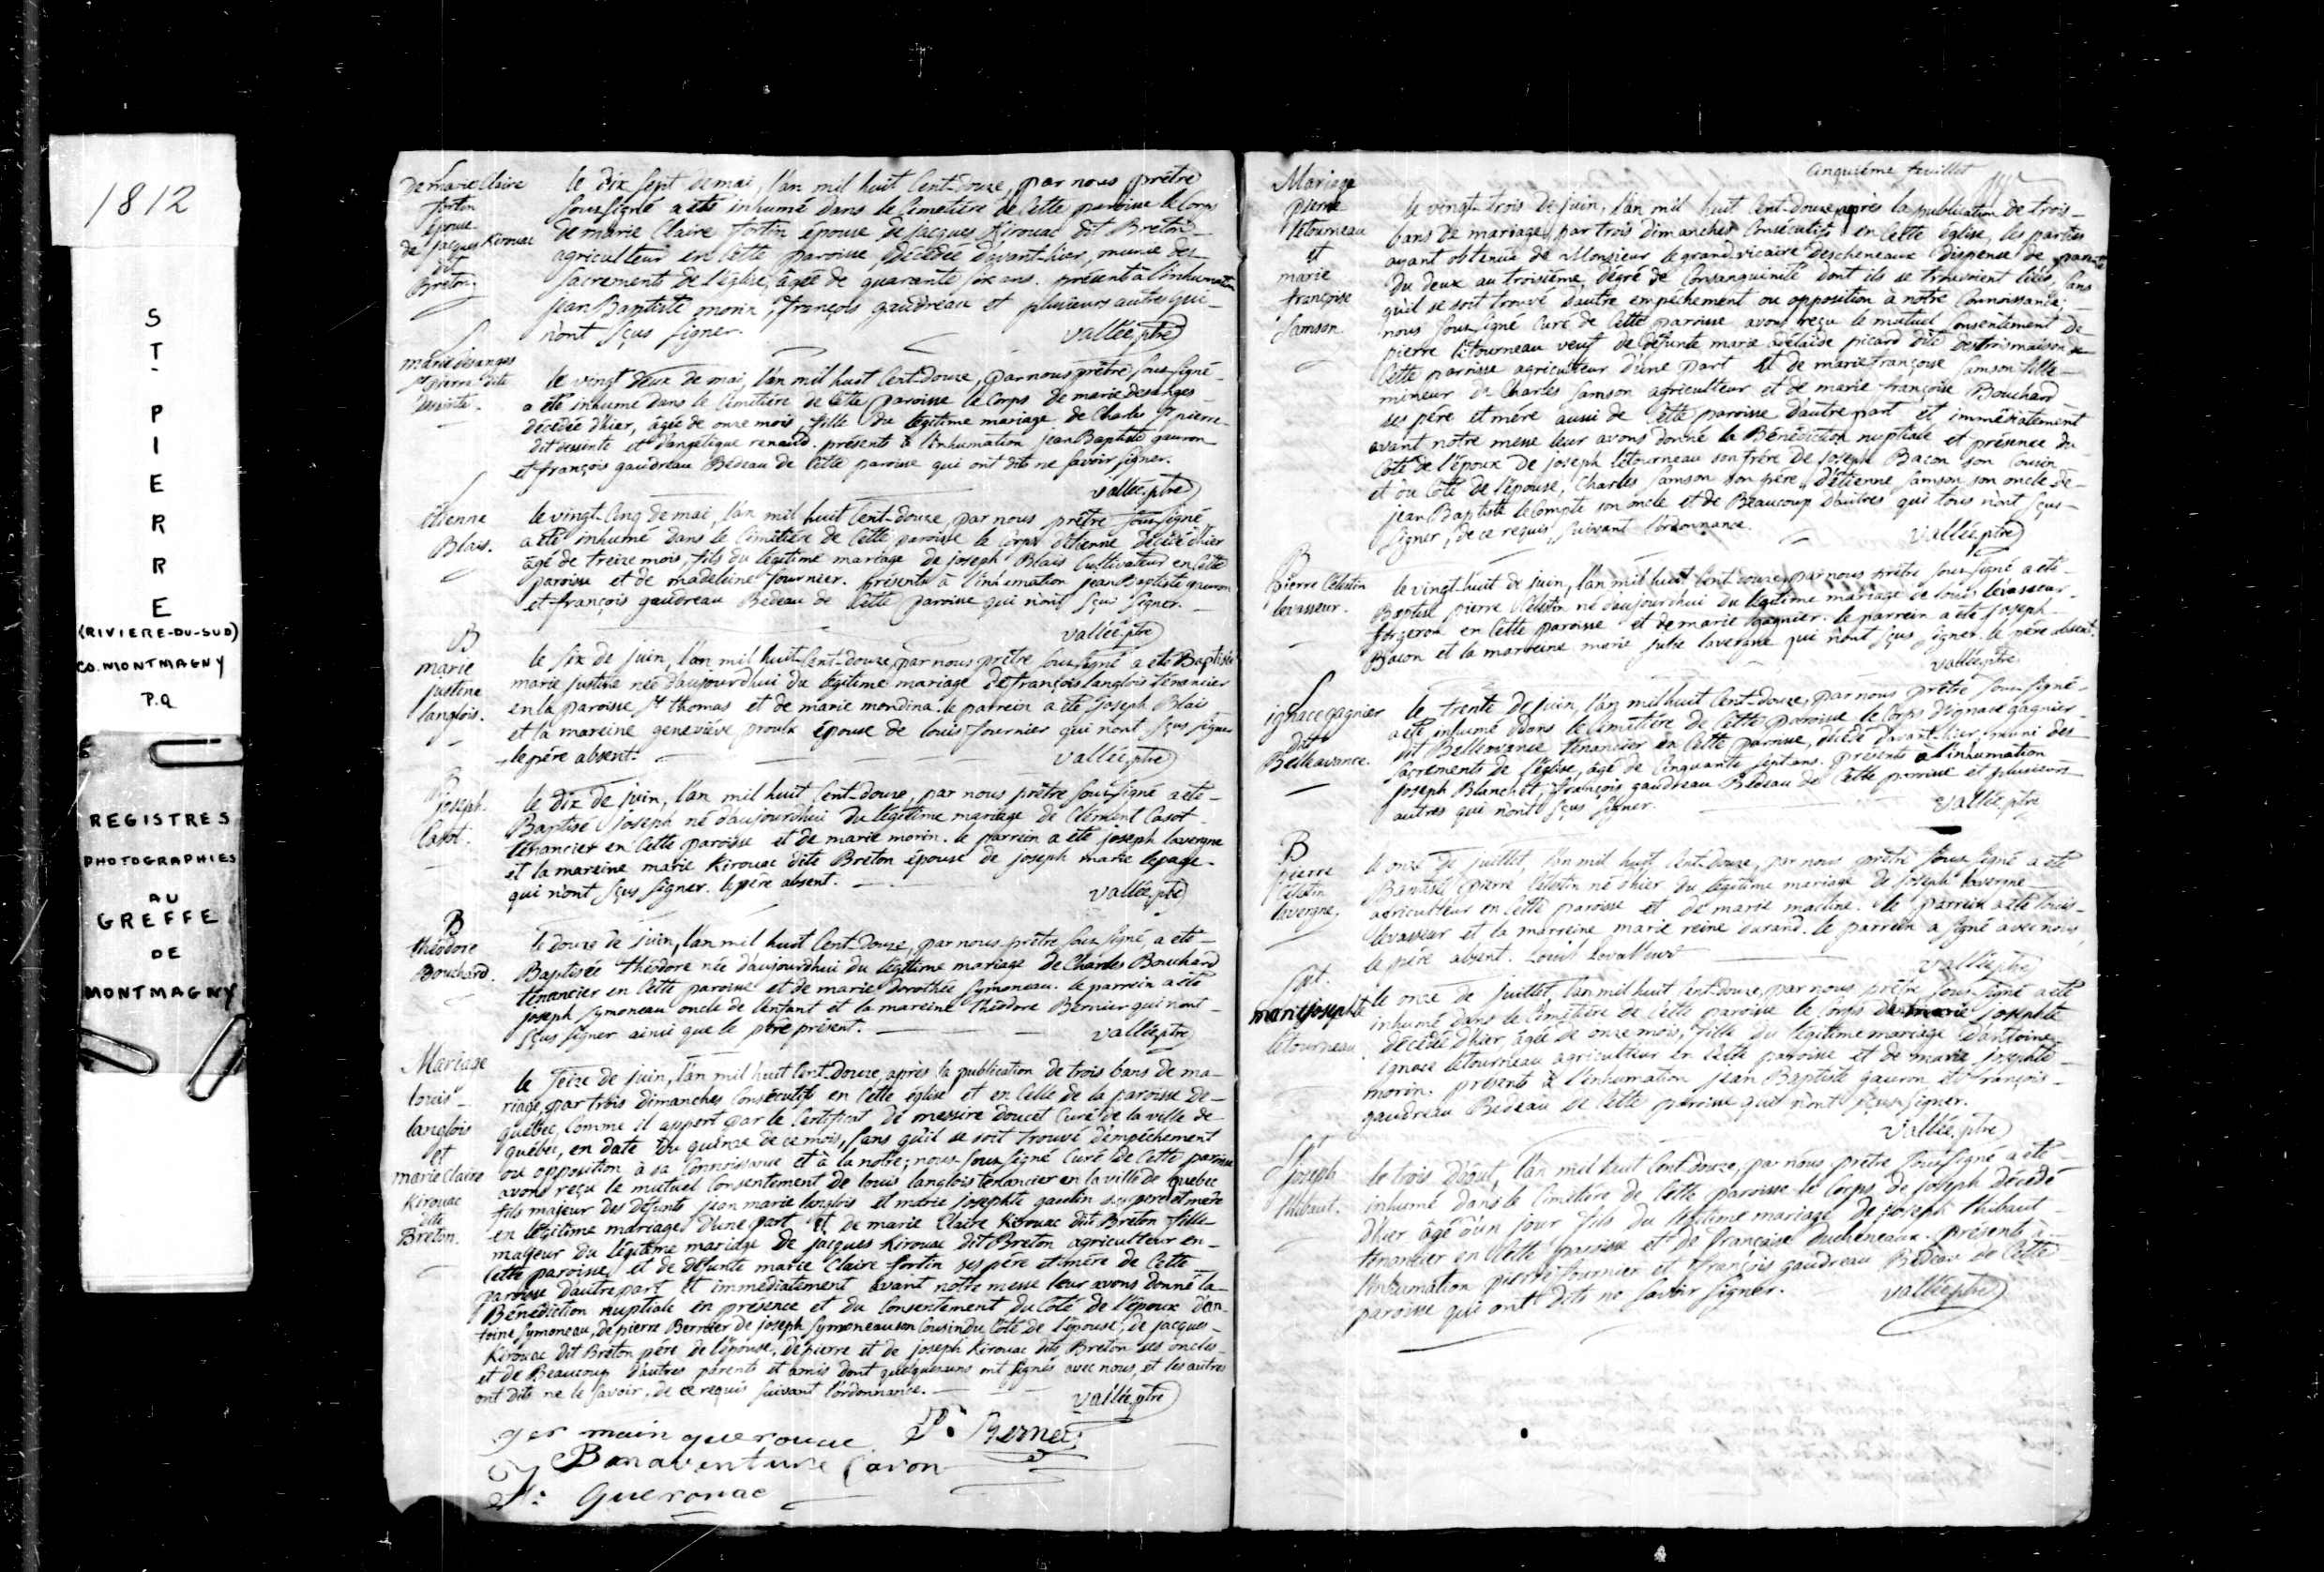 1812
ST-PIERRE
(RIVIERE-DU-SUD)
CO. MONTMAGNY
P.Q
REGISTRES
PHOTOGRAPHIES
AU
GREFFE
DE
MONTMAGNY
S
de marie Claire
fortin
épouse
de jacques Kirouac
dit
Breton
le dix sept de mai, l'an mil huit Cent-douze, par nous prêtre
soussigné a été inhumé dans le Cimetière de Cette paroisse le Corps
de marie Claire fortin épouse de jacques Kirouac dit Breton
agriculteur en Cette paroisse décédée d'avant-hier, munie des
sacrements de l'église, âgée de quarante six ans. présent à l'inhumation
jean Baptiste morin, françois gaudreau et plusieurs autres qui
n'ont sçus signer. vallée, ptre
S
marie desanges
St pierre dite
dessinte.
le vingt deux de mai, l'an mil huit Cent-douze, par nous prêtre soussigné
a été inhumé dans le Cimetière de Cette paroisse le Corps de marie desanges
décédée d'hier, âgée de onze mois, fille du légitime mariage de Charles St pierre
dit dessinte et d'angelique renaud. présents à l'inhumation jean Baptiste gauron
et françois gaudreau Bedeau de Cette paroisse qui ont dits ne savoir signer.
vallée, ptre
S
étienne
Blais.
le vingt-Cinq de mai, l'an mil huit Cent-douze, par nous prêtre soussigné
a été inhumé dans le Cimetière de Cette paroisse le Corps d'étienne décédé d'hier
âgé de treize mois, fils du légitime mariage de joseph Blais Cultivateur en Cette
paroisse et de madeleine fournier. présents à l'inhumation jean Baptiste gauron
et françois gaudreau Bedeau de Cette paroisse qui n'ont sçus signer.
vallée ptre
B
marie
justine
langlois.
le six de juin, l'an mil huit Cent-douze, par nous prêtre soussigné a été Baptisée
marie justine née d'aujourd'hui du légitime mariage de françois langlois tenancier
en la paroisse St thomas et de marie mondina. le parrein a été Joseph Blais
et la mareine geneviéve proulx épouse de louis fournier qui n'ont sçus signer
le père absent. vallée, ptre
B
joseph
Casot.
le dix de juin, l'an mil huit Cent-douze, par nous prêtre soussigné a été
Baptisé Joseph né d'aujourdhui du légitime mariage de Clément Casot
tenancier en Cette paroisse et de marie morin. le parrein a été joseph lavergne
et la mareine marie Kirouac dite Breton épouse de joseph marie lepage
qui n'ont sçus signer. le père absent. vallée, ptre
B
théodore
Bouchard.
le douze de juin, l'an mil huit Cent-douze, par nous prêtre soussigné, a été
Baptisée théodore née d'aujourdhui du légitime mariage de Charles Bouchard
tenancier en Cette paroisse et de marie dorothée Symoneau. le parrein a été
joseph Symoneau oncle de l'enfant et la mareine théodore Bernier qui n'ont
sçus signer ainsi que le père présent. vallée, ptre
Mariage
louis
langlois
et
marie Claire
Kirouac
dite
Breton.
le seize de juin, l'an mil huit Cent-douze, après la publication de trois bans de ma-
riage, par trois dimanches Consécutifs en Cette église et en Celle de la paroisse de
québec, Comme il appert par le Certificat de messire doucet Curé de la ville de
québec, en date du quinze de ce mois, sans qu'il se soit trouvé d'empêchement
ou opposition à sa Connoissance et à la notre; nous soussigné Curé de Cette paroisse
avons reçu le mutuel Consentement de louis langlois tenancier en la ville de québec
fils majeur des défunts jean marie langlois et marie josephte gaulin ses père et mère
en légitime mariage d'une part et de marie Claire Kirouac dite Breton fille
majeur du légitime mariage de jacques Kirouac dit Breton agriculteur en
Cette paroisse, et de défunte marie Claire fortin ses père et mère de Cette
paroisse d'autre part et immédiatement avant notre messe leur avons donné la
Bénédiction nuptiale en présence et du Consentement du Coté de l'époux d'an-
toine Symoneau, de pierre Bernier de joseph Symoneau son Cousin du Coté de l'épouse, de jacques
Kirouac dit Breton père de l'épouse, de pierre et de joseph Kirouac dits Breton ses oncles
et de Beaucoup d'autres parents et amis dont quelques uns ont signés avec nous, et les autres
ont dits ne le savoir, de ce requis suivant l'ordonnance. vallée, ptre
germain querouac P: Berne
Bonaventure Caron
Querouac
Cinquième feuillet
Mariage
pierre
létourneau
et
marie
françoise
Samson
le vingt-trois de juin, l'an mil huit Cent-douze, après la publication de trois
bans de mariage, par trois dimanches Consécutifs en Cette église, les parties
ayant obtenue de Monsieur le grand vicaire descheneaux dispense de parenté
du deux au troisième degré de Consanguinité dont ils se trouvoient liées, sans
qu'il se soit trouvé d'autre empêchement ou opposition à notre Connoissance;
nous soussigné Curé de Cette paroisse avons reçu le mutuel Consentement de
pierre létourneau veuf de défunte marie adélaïde picard dite destroismaison de
Cette paroisse agriculteur d'une part et de marie françoise Samson fille
mineur de Charles Samson agriculteur et de marie françoise Bouchard
ses père et mère aussi de Cette paroisse d'autre part et immédiatement
avant notre messe leur avons donné la Bénédiction nuptiale et présence du
Coté de l'époux de joseph létourneau son frère de joseph Bacon son Cousin
et du Coté de l'épouse, Charles Samson son père, d'étienne Samson son oncle de
jean Baptiste leCompte son oncle et de Beaucoup d'autres qui tous n'ont sçus
signer, de ce requis, suivant l'ordonnance. vallée, ptre
B
pierre Célestin
levasseur.
le vingt-huit de juin, l'an mil huit Cent-douze, par nous prêtre soussigné a été
Baptisé pierre Célestin né d'aujourdhui du légitime mariage de louis levasseur
forgeron en Cette paroisse et de marie gagnier. le parrein a été Joseph
Bacon et la marreine marie julie lavergne qui n'ont sçus signer. le père absent.
vallée, ptre
S
ignace gagnier
dit
Belleavance.
le trente de juin, l'an mil huit Cent-douze, par nous prêtre soussigné
a été inhumé dans le Cimetière de Cette paroisse le Corps d'ignace gagnier
dit Belleavance tenancier en Cette paroisse, décédé d'avant hier, muni des
sacrements de l'église, âgé de Cinquante sept ans. présents à l'inhumation
Joseph Blanchet, françois gaudreau Bedeau de Cette paroisse et plusieurs
autres qui n'ont sçus signer. vallée, ptre
B
pierre
Célestin
lavergne,
le onze de juillet, l'an mil huit Cent-douze, par nous prêtre soussigné a été
Baptisé pierre Célestin né d'hier du légitime mariage de Joseph lavergne
agriculteur en Cette paroisse et de marie . le parrein a été louis
levasseur et la marreine marie reine durand. le parrein a signé avec nous,
le père absent. Louis Levasseur vallée, ptre
marie josephte
létourneau
le onze de juillet, l'an mil huit Cent-douze, par nous prêtre soussigné a été
inhumé dans le Cimetière de Cette paroisse le Corps de marie josephte
décédé d'hier âgée de onze mois, fille du légitime mariage d'antoine
ignace létourneau agriculteur en Cette paroisse et de marie josephte
morin. présents à l'inhumation jean Baptiste gauron et françois
gaudreau Bedeau de Cette paroisse qui n'ont sçus signer.
vallée, ptre
Joseph
thibaut.
le trois d'août, l'an mil huit Cent-douze, par nous prêtre soussigné a été
inhumé dans le Cimetière de Cette paroisse le Corps de joseph décédé
d'hier âgé d'un jour fils du légitime mariage de joseph thibaut
tenancier en Cette paroisse et de françoise ducheneaux. présents à
l'inhumation pierre fournier et françois gaudreau Bedeau de Cette
paroisse qui ont dits ne savoir signer. vallée, ptre